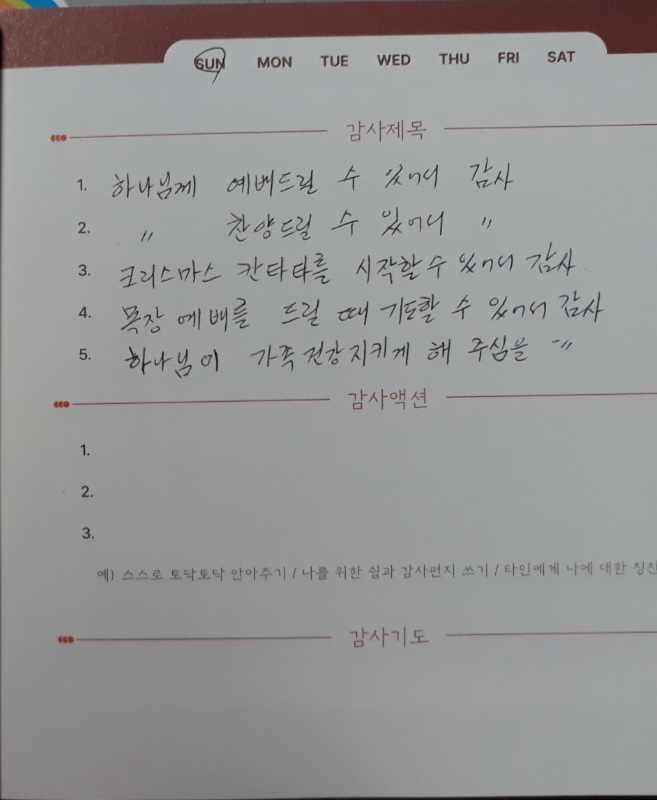 SUN MON TUE WED THU FRI SAT
감사제목
1. 하나님께 예배드릴 수 있어서 감사
2. 〃 찬양드릴 수 있어서 〃
3. 크리스마스 칸타타를 시작할 수 있어서 감사
4. 목장 예배를 드릴 때 기도할 수 있어서 감사
5. 하나님이 가족 건강 지키게 해 주심을 〃
감사액션
1.
2.
3.
예) 스스로 토닥토닥 안아주기 / 나를 위한 쉼과 감사편지 쓰기 / 타인에게 나에 대한 칭찬
감사기도